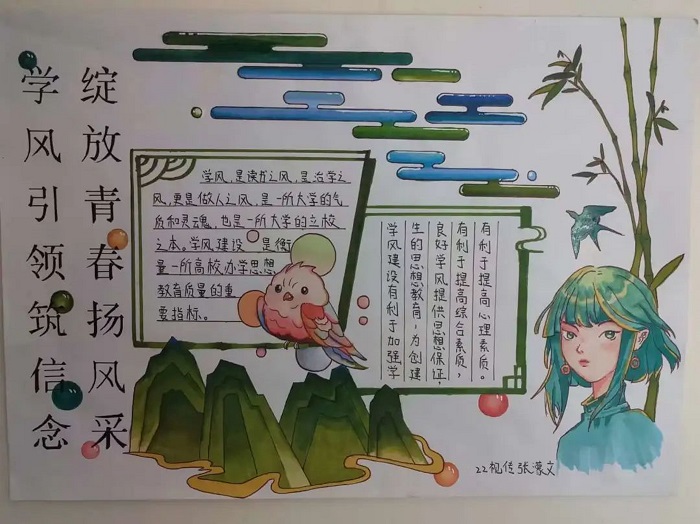 学风引领筑信念
绽放青春扬风采
学风,是读书之风,是治学之
风,更是做人之风,是一所大学的气
质和灵魂,也是一所大学的立校
之本。学风建设 是衡
量一所高校办学思想、
教育质量的重
要指标。
学风建设有利于加强学
生的思想教育,为创建
良好学风提供思想保证,
有利于提高综合素质,
有利于提高心理素质。
22视传张濛文